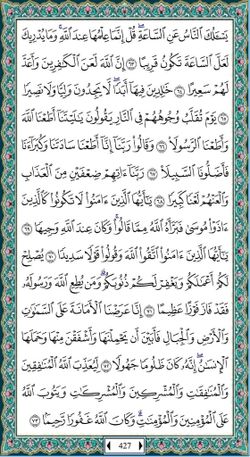 يَسْـَٔلُكَ ٱلنَّاسُ عَنِ ٱلسَّاعَةِ ۖ قُلْ إِنَّمَا عِلْمُهَا عِندَ ٱللَّهِ ۚ وَمَا يُدْرِيكَ
لَعَلَّ ٱلسَّاعَةَ تَكُونُ قَرِيبًا ٦٣ إِنَّ ٱللَّهَ لَعَنَ ٱلْكَـٰفِرِينَ وَأَعَدَّ
لَهُمْ سَعِيرًا ٦٤ خَـٰلِدِينَ فِيهَآ أَبَدًا ۖ لَّا يَجِدُونَ وَلِيًّا وَلَا نَصِيرًا ٦٥
يَوْمَ تُقَلَّبُ وُجُوهُهُمْ فِى ٱلنَّارِ يَقُولُونَ يَـٰلَيْتَنَآ أَطَعْنَا ٱللَّهَ
وَأَطَعْنَا ٱلرَّسُولَا۠ ٦٦ وَقَالُوا۟ رَبَّنَآ إِنَّآ أَطَعْنَا سَادَتَنَا وَكُبَرَآءَنَا
فَأَضَلُّونَا ٱلسَّبِيلَا۠ ٦٧ رَبَّنَآ ءَاتِهِمْ ضِعْفَيْنِ مِنَ ٱلْعَذَابِ
وَٱلْعَنْهُمْ لَعْنًا كَبِيرًا ٦٨ يَـٰٓأَيُّهَا ٱلَّذِينَ ءَامَنُوا۟ لَا تَكُونُوا۟ كَٱلَّذِينَ
ءَاذَوْا۟ مُوسَىٰ فَبَرَّأَهُ ٱللَّهُ مِمَّا قَالُوا۟ ۚ وَكَانَ عِندَ ٱللَّهِ وَجِيهًا ٦٩
يَـٰٓأَيُّهَا ٱلَّذِينَ ءَامَنُوا۟ ٱتَّقُوا۟ ٱللَّهَ وَقُولُوا۟ قَوْلًا سَدِيدًا ٧٠ يُصْلِحْ
لَكُمْ أَعْمَـٰلَكُمْ وَيَغْفِرْ لَكُمْ ذُنُوبَكُمْ ۗ وَمَن يُطِعِ ٱللَّهَ وَرَسُولَهُۥ
فَقَدْ فَازَ فَوْزًا عَظِيمًا ٧١ إِنَّا عَرَضْنَا ٱلْأَمَانَةَ عَلَى ٱلسَّمَـٰوَٰتِ
وَٱلْأَرْضِ وَٱلْجِبَالِ فَأَبَيْنَ أَن يَحْمِلْنَهَا وَأَشْفَقْنَ مِنْهَا وَحَمَلَهَا
ٱلْإِنسَـٰنُ ۖ إِنَّهُۥ كَانَ ظَلُومًا جَهُولًا ٧٢ لِّيُعَذِّبَ ٱللَّهُ ٱلْمُنَـٰفِقِينَ
وَٱلْمُنَـٰفِقَـٰتِ وَٱلْمُشْرِكِينَ وَٱلْمُشْرِكَـٰتِ وَيَتُوبَ ٱللَّهُ
عَلَى ٱلْمُؤْمِنِينَ وَٱلْمُؤْمِنَـٰتِ ۗ وَكَانَ ٱللَّهُ غَفُورًا رَّحِيمًۢا ٧٣
427